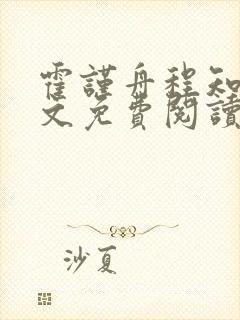 霍謹舟程知
文免費閱讀
沙夏